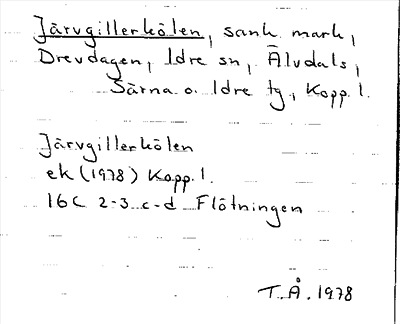 Järvgillerkölen, sank mark,
Drevdagen, Idre sn, Älvdals,
Särna o. Idre tg, Kopp. l.
Järvgillerkölen
ek (1978) Kopp. l.
16C 2-3 c-d Flötningen
T.Å. 1978